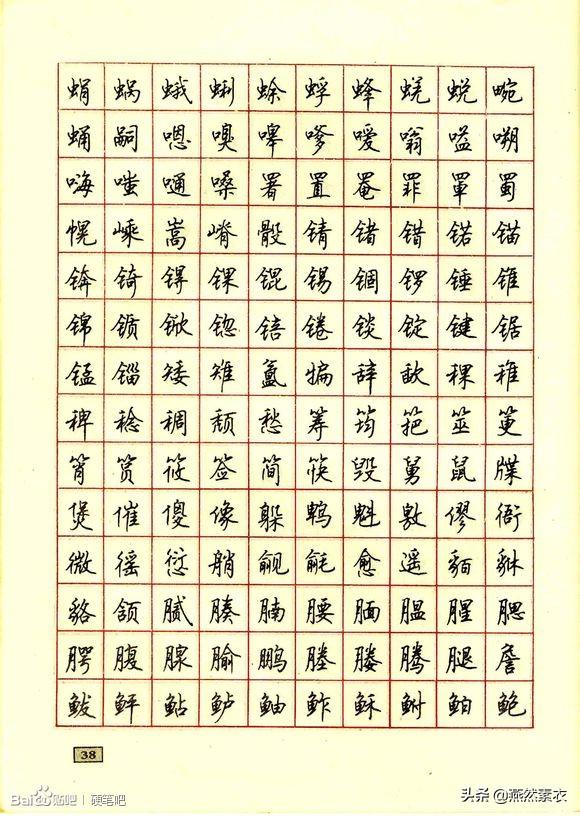 蜎蜗蛾蜊蜍蜉蜂蜣蜕畹
蛹嗣嗯嗅嗥嗲嗳嗡嗌嗍
嗨嗤嗵嗓署置罨罪罩蜀
幌嵊嵩嵴骰锖锗错锘锚
锛锜锝锞锟锡锢锣锤锥
锦锧锨锪锫锩锬锭键锯
锰锱矮雉氲犏辞歃稞稚
稗稔稠颓愁筹筠筢筮筻
筲筼筱签简筷毁舅鼠牒
煲催傻像躲鹎魁敫僇衙
微徭愆艄觎毹愈遥貊貅
貉颔腻腠腩腰腼腽腥腮
腭腹腺腧鹏塍媵腾腿詹
鲅鲆鲇鲈鲉鲊稣鲋鲌鲍
38
Bai贴吧 | 硬笔吧
头条 @燕然素衣